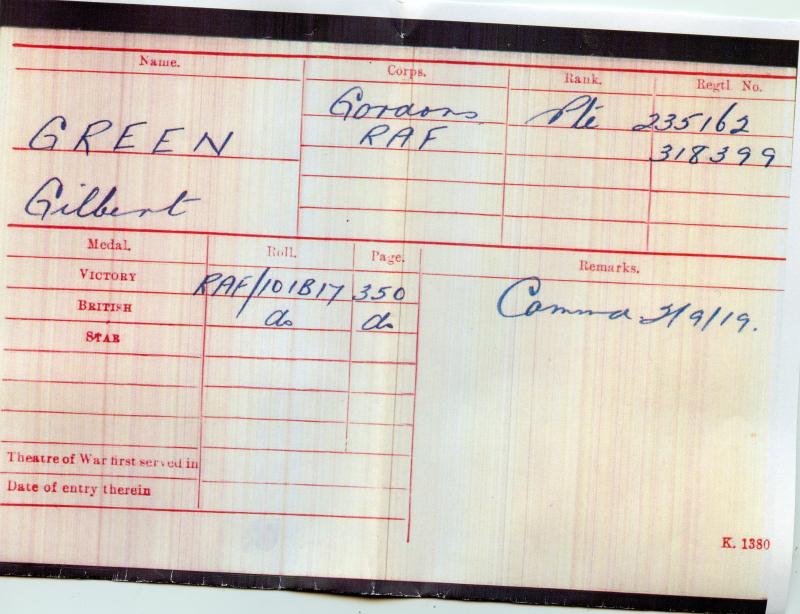 Name. Corps. Rank. Regtl. No.
Gordons Pte 235162
GREEN RAF 318399
Gilbert
Medal. Roll. Page. Remarks.
VICTORY RAF/101B17 350
BRITISH do do
STAR
2/9/19.
Theatre of War first served in
Date of entry therein
K. 1380